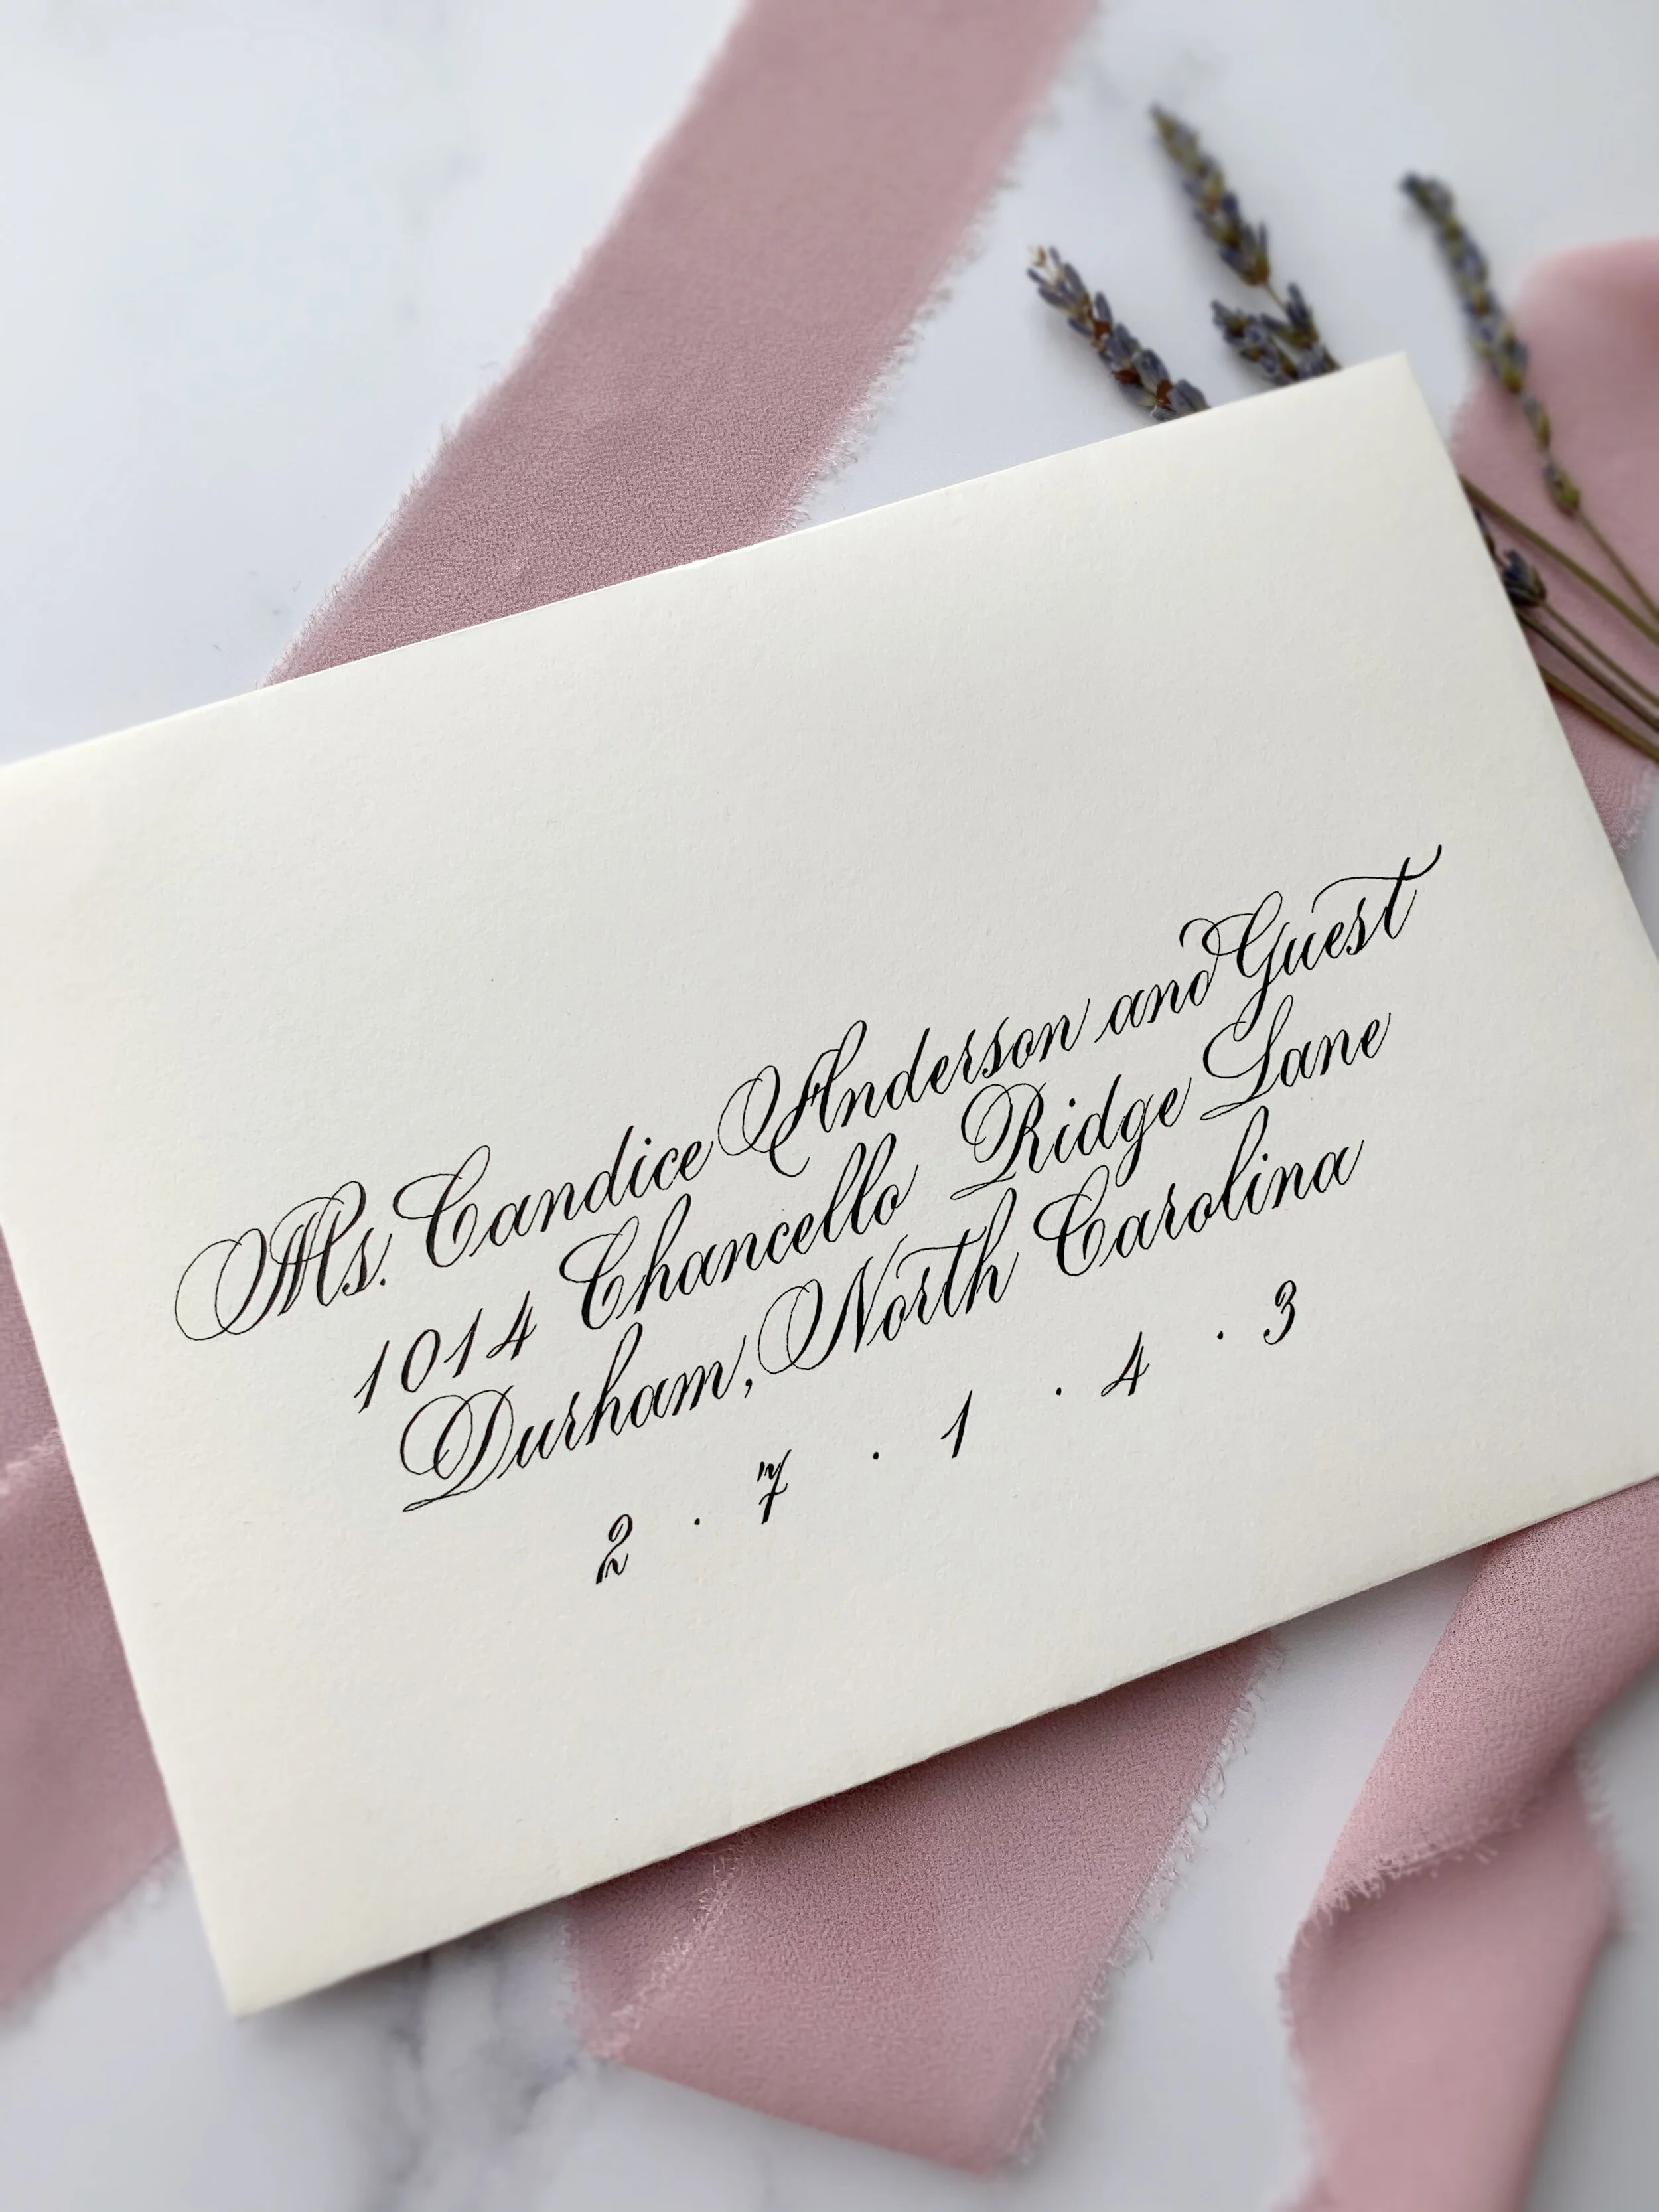 Ms. Candice Anderson and Guest
1014 Chancello Ridge Lane
Durham, North Carolina
2 · 7 · 1 · 4 · 3